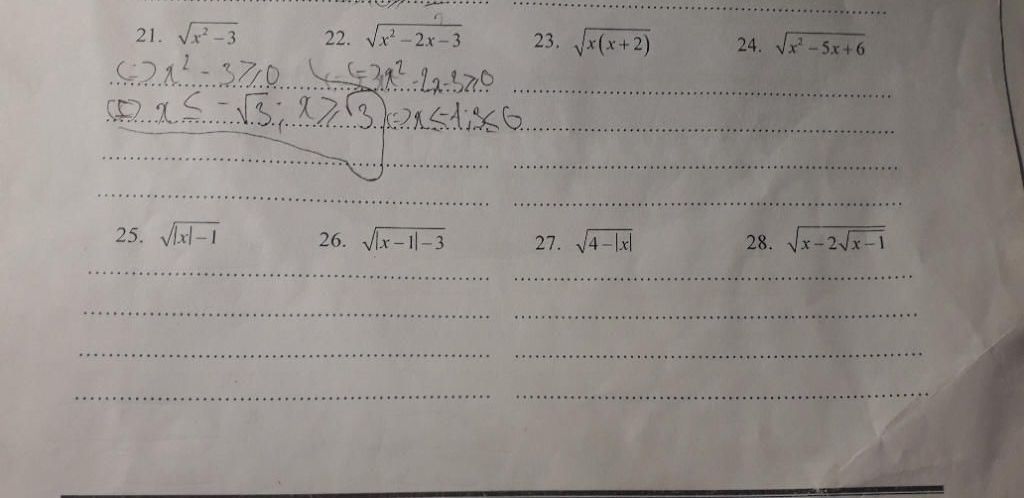 21. √(x² – 3) 22. √(x² – 2x – 3) 23. √(x(x+2)) 24. √(x² – 5x + 6)
(=) x² - 3 ⩾ 0 (=) x² - 2x - 3 ⩾ 0
(=) x ≤ -√3; x ⩾ √3 (=) x ≤ 1;
25. √(|x| – 1) 26. √(|x – 1| – 3) 27. √(4 – |x|) 28. √(x – 2√(x – 1))